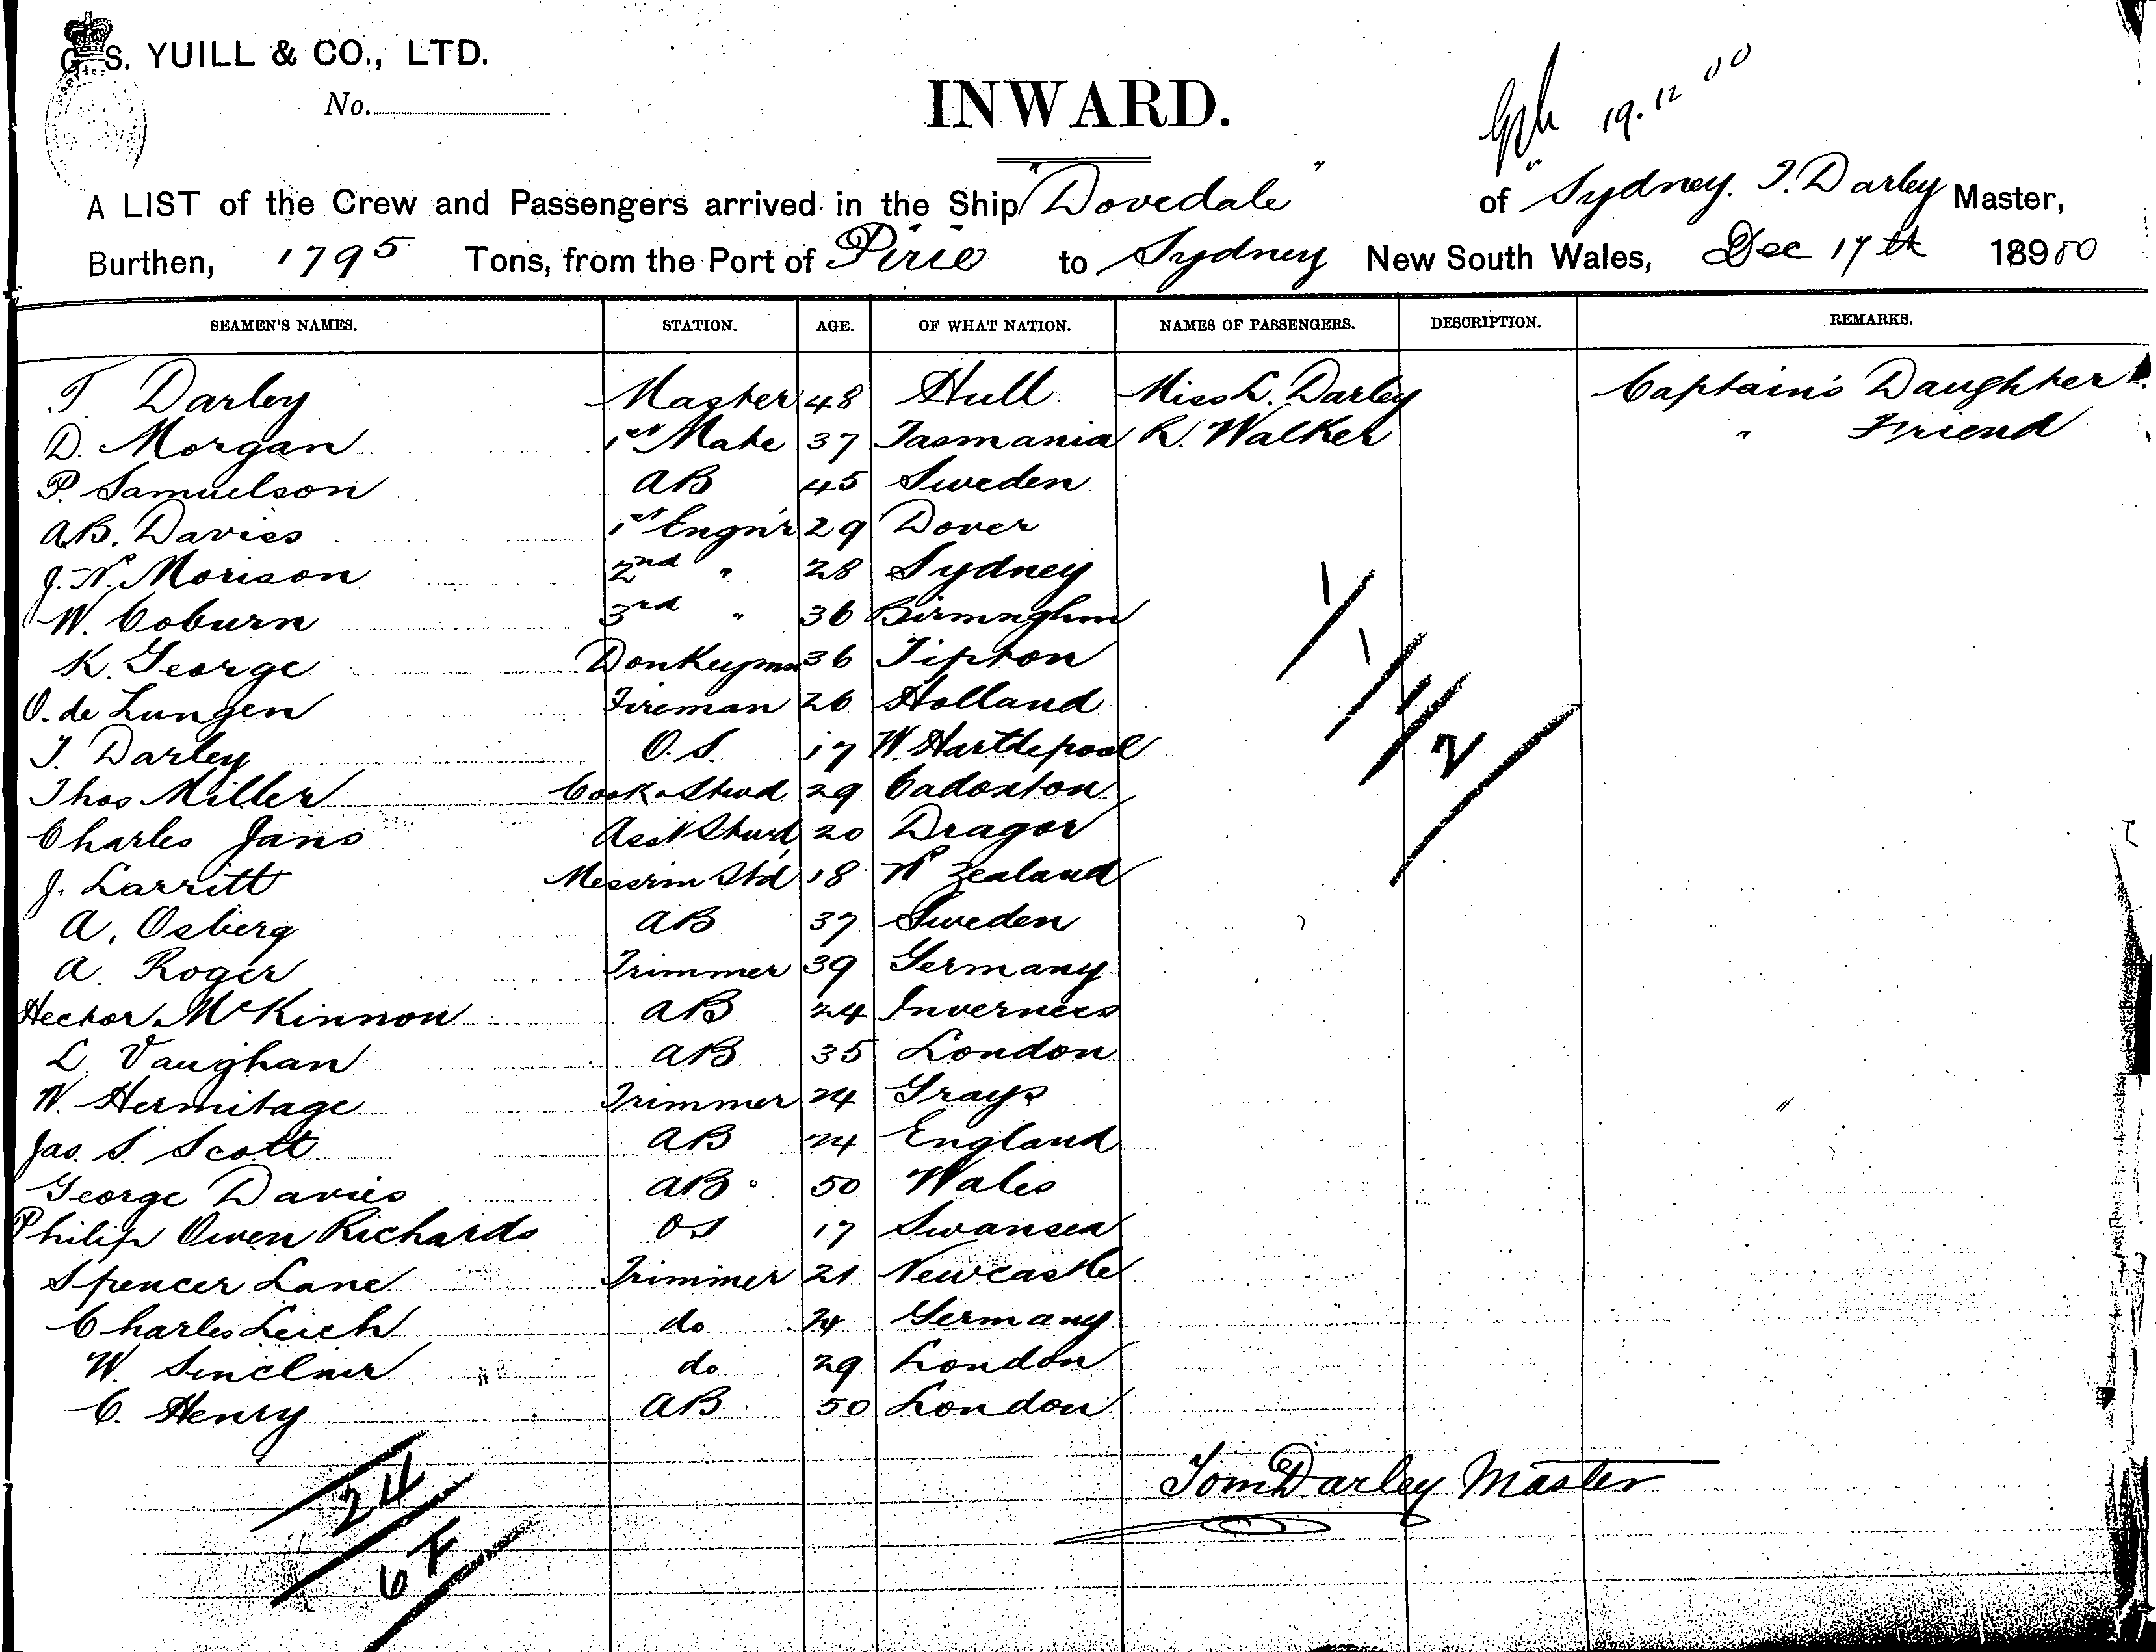 G. S. YUILL & CO., LTD.
No.
INWARD.
19.12 00
A LIST of the Crew and Passengers arrived in the Ship "Dovedale" of Sydney. T. Darley Master,
Burthen, 1795 Tons, from the Port of Pirie to Sydney New South Wales, Dec 17th 18900
SEAMEN'S NAMES. STATION. AGE. OF WHAT NATION. NAMES OF PASSENGERS. DESCRIPTION. REMARKS.
T. Darley Master 48 Hull Miss L. Darley Captain's Daughter
D. Morgan 1st Mate 37 Tasmania R. Walker " Friend
P. Samuelson AB 45 Sweden
A.B. Davies 1st Engn'r 29 Dover
J. N. Morison 2nd " 28 Sydney
W. Coburn 3rd " 36 Birminghm
K. George Donkeyman 36 Tipton
O. de Lungen Fireman 26 Holland
T. Darley O.S. 17 W. Hartlepool
Thos Miller Cook & Stwd 29 Cadoxton
Charles Jans Asst Stwd 20 Dragor
J. Larritt Messrm Std 18 N Zealand
A. Osberg AB 37 Sweden
A. Roger Trimmer 39 Germany
Hector McKinnon AB 24 Inverness
L. Vaughan AB 35 London
W. Hermitage Trimmer 24 Grays
Jas. S. Scott AB 24 England
George Davies AB 50 Wales
Philip Owen Richards OS 17 Swansea
Spencer Lane Trimmer 21 Newcastle
Charles Leich do 24 Germany
W. Sinclair do 29 London
C. Henry AB 50 London
1
1
2
24
Tom Darley Master
6 F